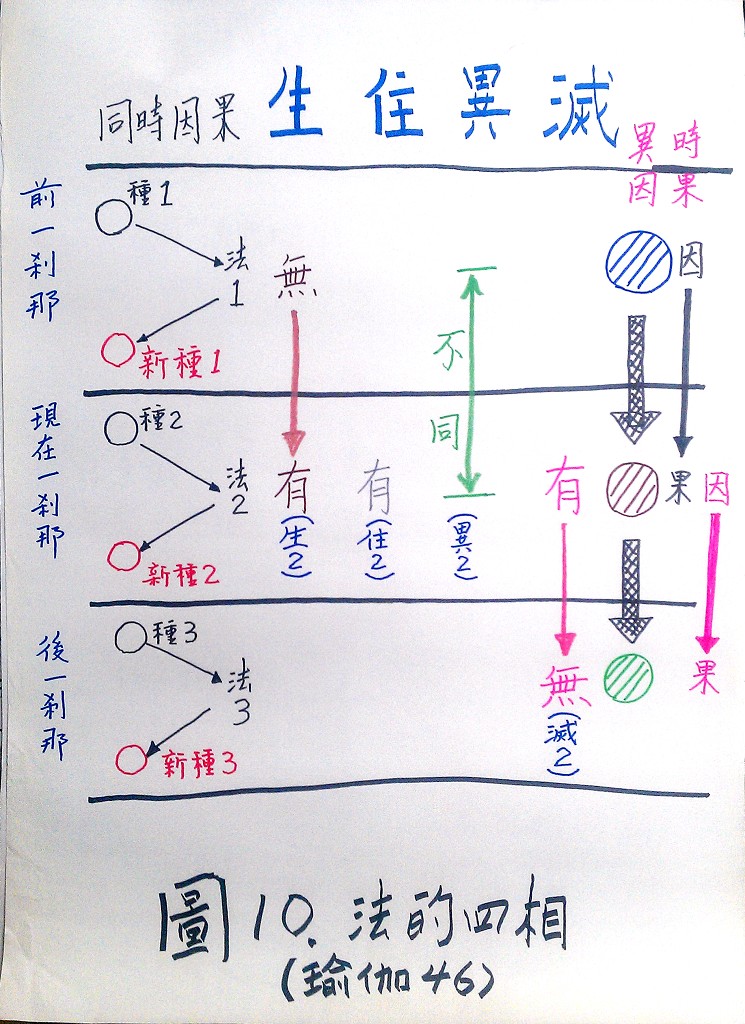 同時因果 生 住 異 滅
異時
因果
前一剎那
種1
法1
新種1
無
不同
因
現在一剎那
種2
法2
新種2
有
(生2)
有
(住2)
(異2)
有
果
因
後一剎那
種3
法3
新種3
無
(滅2)
果
圖10. 法的四相
(瑜伽46)